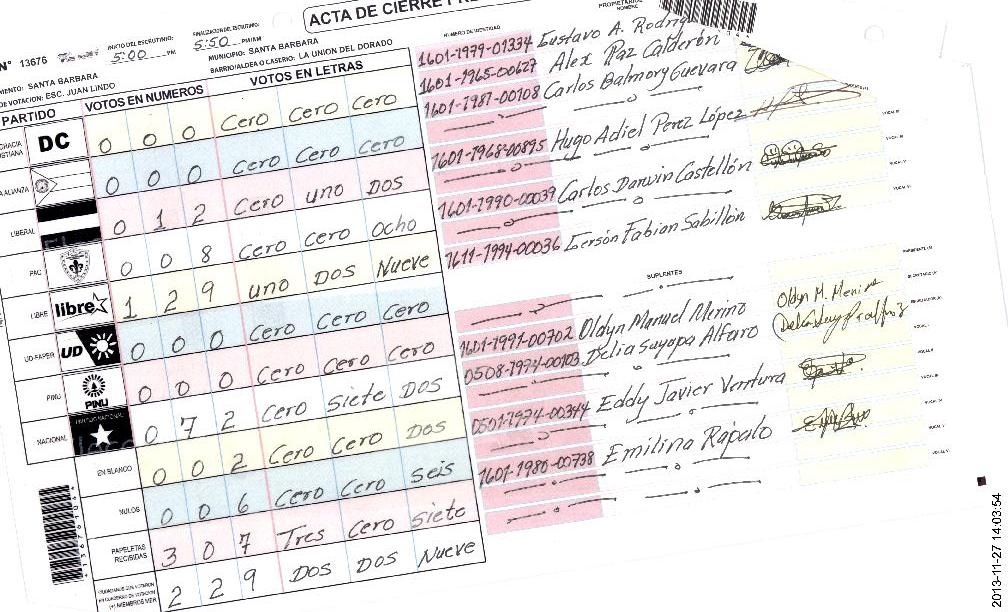 ACTA DE CIERRE Y
N° 13676
INICIO DEL ESCRUTINIO: 5:00 PM
FINALIZACION ESCRUTINIO: 5:50 PM/AM
MENTO: SANTA BARBARA
MUNICIPIO: SANTA BARBARA
DE VOTACION: ESC. JUAN LINDO
BARRIO/ALDEA O CASERIO: LA UNION DEL DORADO
PARTIDO VOTOS EN NUMEROS VOTOS EN LETRAS
DC 0 0 0 Cero Cero Cero
ALIANZA 0 0 0 Cero Cero Cero
LIBERAL 0 1 2 Cero uno Dos
PAC 0 0 8 Cero Cero Ocho
LIBRE libre 1 2 9 uno Dos Nueve
UD-FAPER UD 0 0 0 Cero Cero Cero
PINU PINU 0 0 0 Cero Cero Cero
NACIONAL 0 7 2 Cero Siete Dos
EN BLANCO 0 0 2 Cero Cero Dos
NULOS 0 0 6 Cero Cero Seis
PAPELETAS RECIBIDAS 3 0 7 Tres Cero Siete
2 2 9 Dos Dos Nueve
NUMERO DE IDENTIDAD
PROPIETARIOS
NOMBRE
1601-1979-01334 Gustavo A. Rodrig
1601-1965-00627 Alex Paz Calderón
1601-1987-00108 Carlos Balmory Guevara
1601-1968-00895 Hugo Adiel Perez López
1601-1990-00039 Carlos Darwin Castellón
1611-1994-00036 Gerson Fabian Sabillón
SUPLENTES
1601-1991-00702 Oldyn Manuel Merino Oldyn M. Merino
0508-1974-00103 Delia Suyapa Alfaro
0501-1974-00344 Eddy Javier Ventura
1601-1980-00738 Emilina Rápalo
2013-11-27 14:03:54